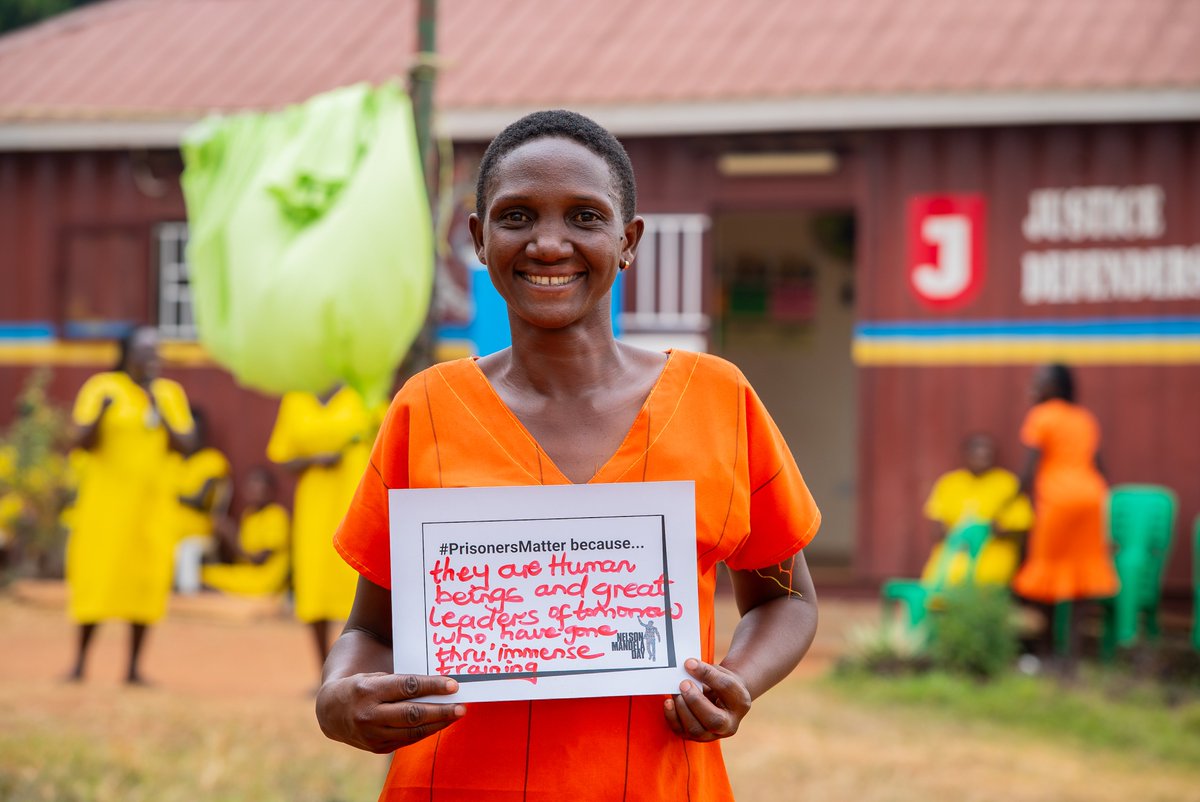 J
JUSTICE
DEFENDERS
#PrisonersMatter because...
they are Human
beings and great
Leaders of tomorrow
who have gone
thru' immense
training
NELSON
MANDELA
DAY